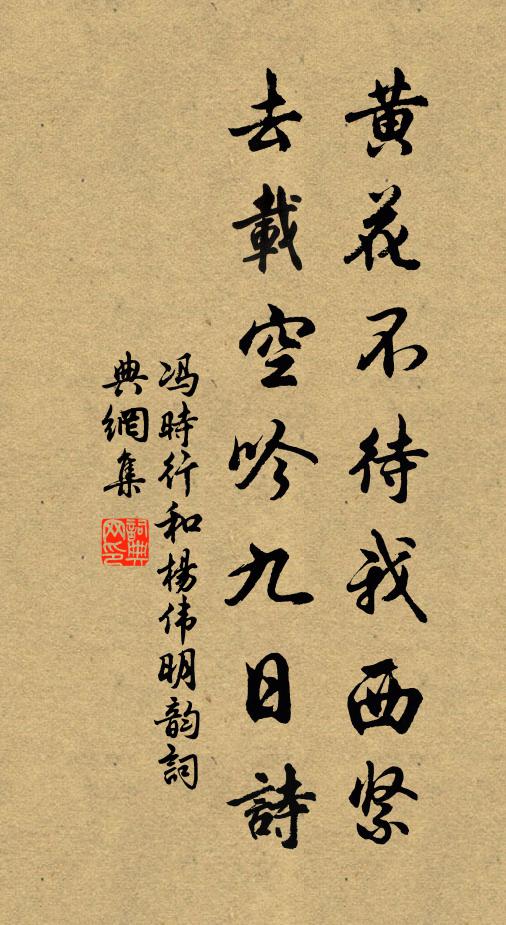 黄花不待我西紧
去載空吟九日詩
冯時行和楊伟明韵詞
典網集
詞典网印